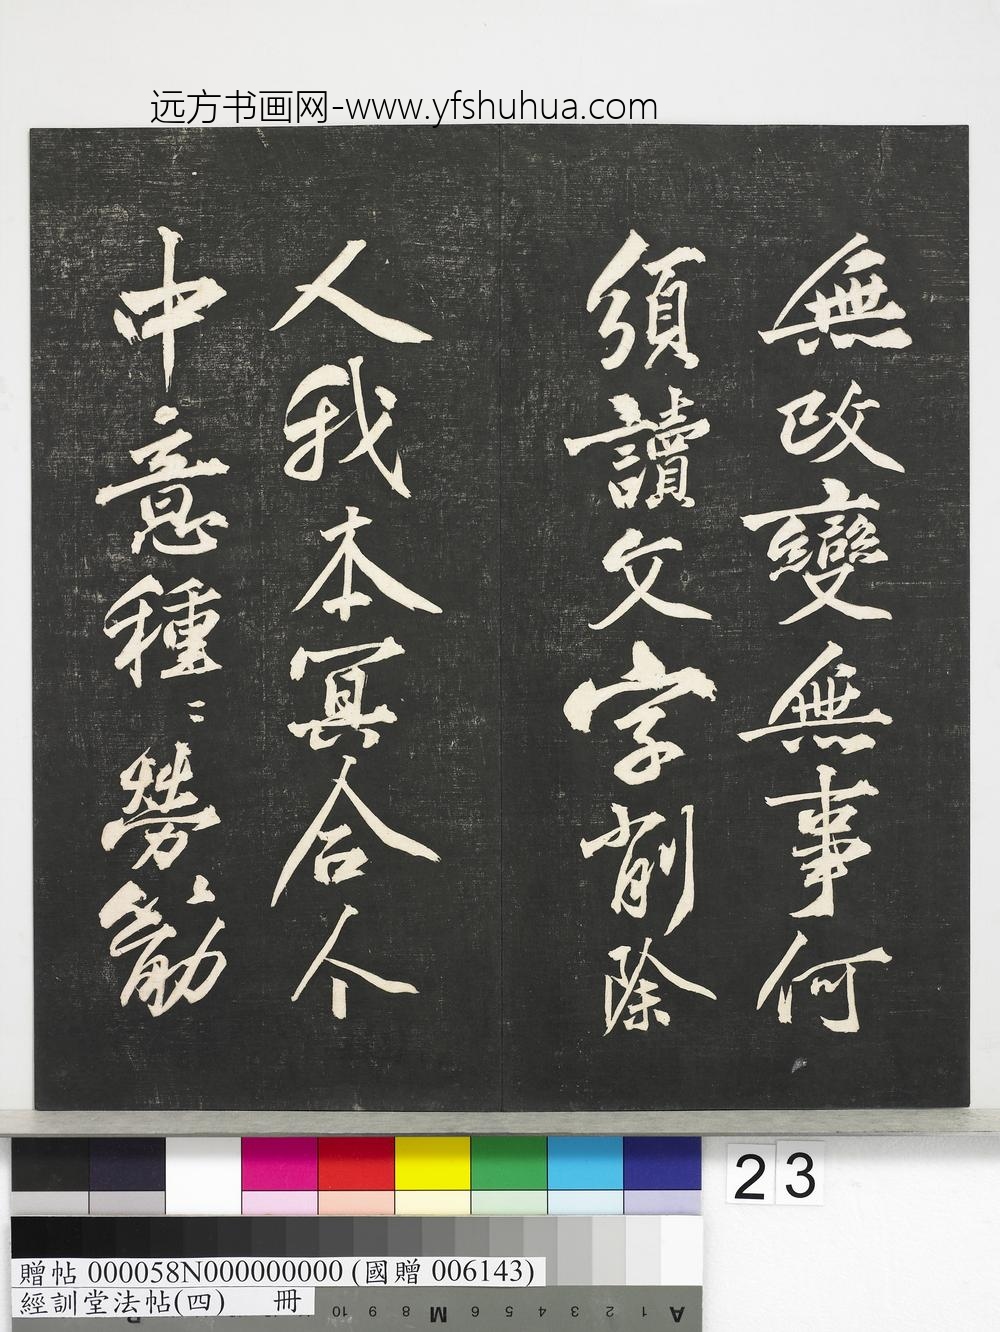 远方书画网-www.yfshuhua.com
無改變無事何
須讀文字削除
人我本冥合个
中意種〻勞筋
23
贈帖 000058N000000000 (國贈 006143)
經訓堂法帖(四) 冊
A 1 2 3 4 5 6 M 8 9 10